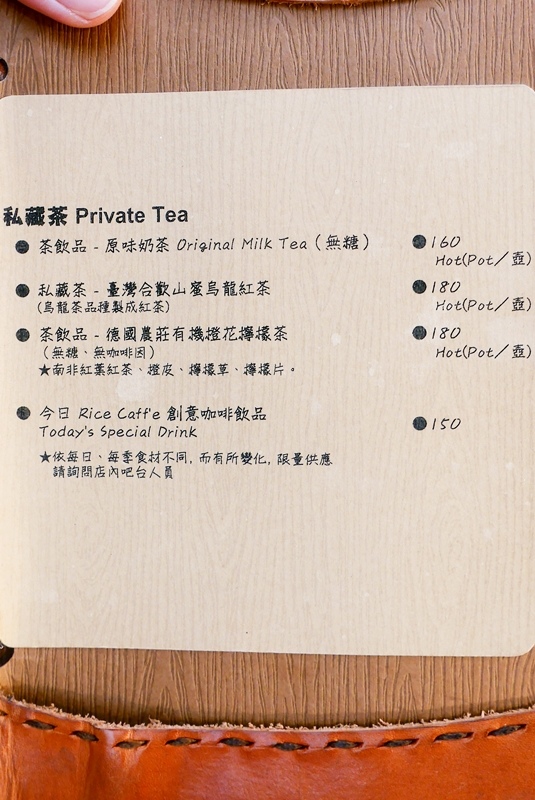 私藏茶 Private Tea
茶飲品 - 原味奶茶 Original Milk Tea（無糖） 160
Hot(Pot／壺)
私藏茶 - 臺灣合歡山蜜烏龍紅茶 180
(烏龍茶品種製成紅茶) Hot(Pot／壺)
茶飲品 - 德國農莊有機橙花檸檬茶 180
（無糖、無咖啡因） Hot(Pot／壺)
★南非紅葉紅茶、橙皮、檸檬草、檸檬片。
今日 Rice Caff'e 創意咖啡飲品
Today's Special Drink 150
★依每日、每季食材不同, 而有所變化, 限量供應
請詢問店內吧台人員